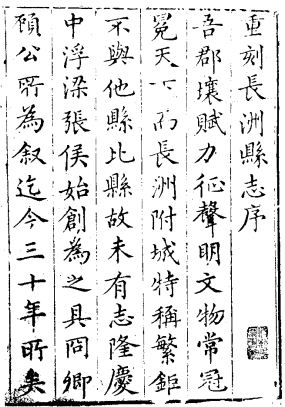 重刻長洲縣志序
吾郡壤賦力征聲明文物常冠
冕天下而長洲附城特稱繁鉅
不與他縣比縣故未有志隆慶
中浮梁張侯始創為之具冏卿
頋公所為叙迄今三十年所矣